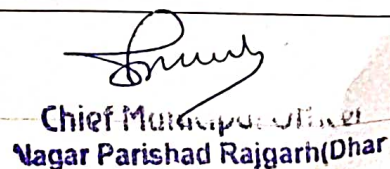 Chief Municipal Officer
Nagar Parishad Rajgarh(Dhar